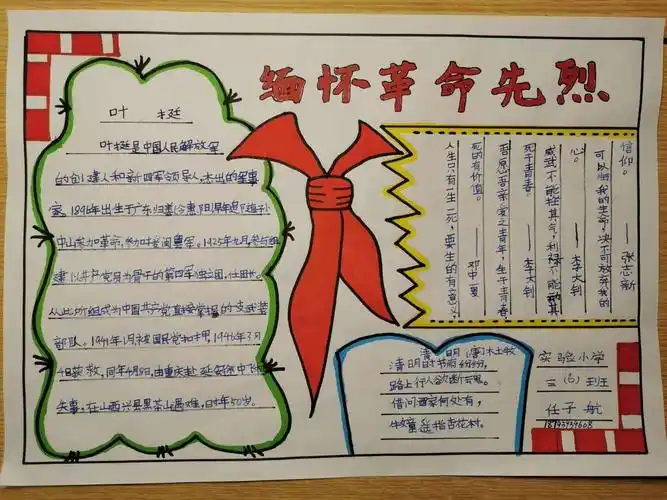 缅怀革命先烈
叶 挺
叶挺是中国人民解放军
的创建人和新四军领导人,杰出的军事
家。1896年出生于广东归善(今惠阳),早年即随孙
中山参加革命,参加过粤军。1925年九月,参与组
建以共产党员为骨干的第四军独立团,任团长。
从此所组成为中国共产党直接掌握的一支武装
部队。1941年1月被国民党扣押,1946年3月
4日获救,同年4月8日,由重庆赴延安途中飞机
失事,在山西兴县黑茶山遇难,时年50岁。
信仰。——张志新
可以将我的生命,决不可放弃我的
心。——李大钊
威武不能挫其气,利禄不能动其
死于青春。——李大钊
吾愿吾亲爱之青年,生于青春,
死的有价值。——邓中夏
人生只有一生一死,要生的有意义,
清 明 (唐)杜牧
清明时节雨纷纷,
路上行人欲断魂。
借问酒家何处有,
牧童遥指杏花村。
实验小学
三(6)班
任子航
18793939608